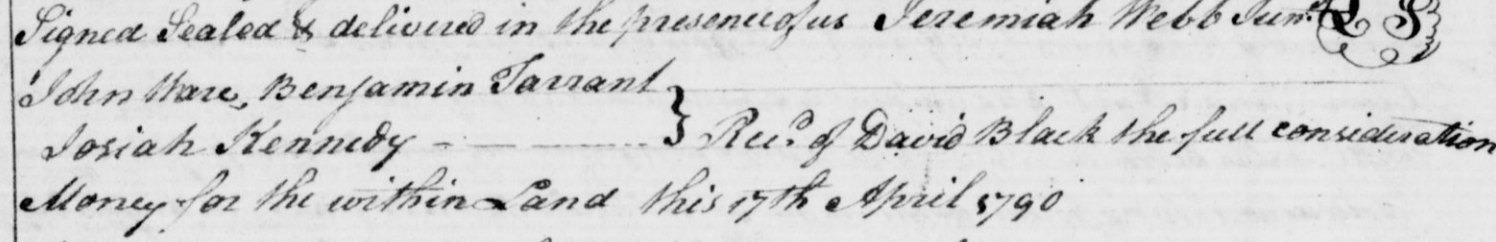 Signed Sealed & delivered in the presence of us Jeremiah Webb Junr. L S
John Ware, Benjamin Tarrant }
Josiah Kennedy - - - } Recd. of David Black the full consideration
Money for the within Land this 17th April 1790